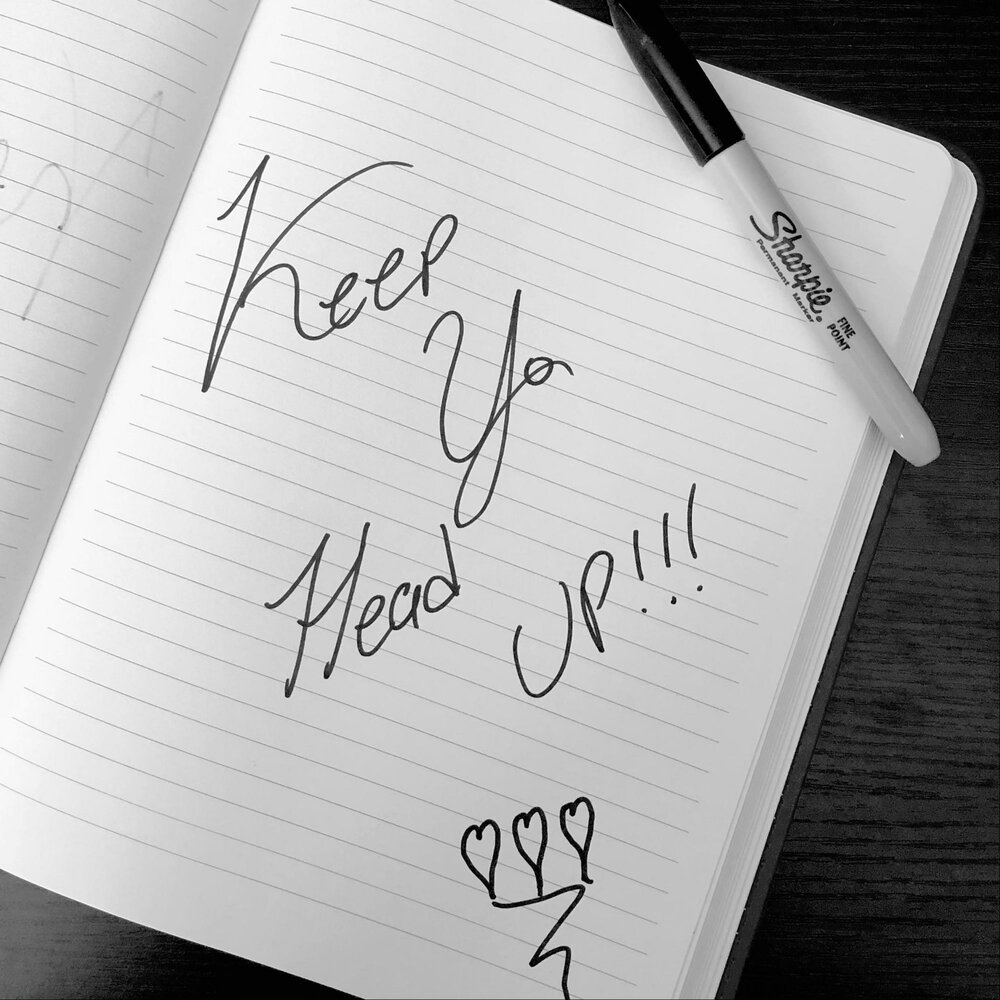 Keep
Ya
Head
UP!!!
Sharpie®
Permanent Marker
FINE
POINT